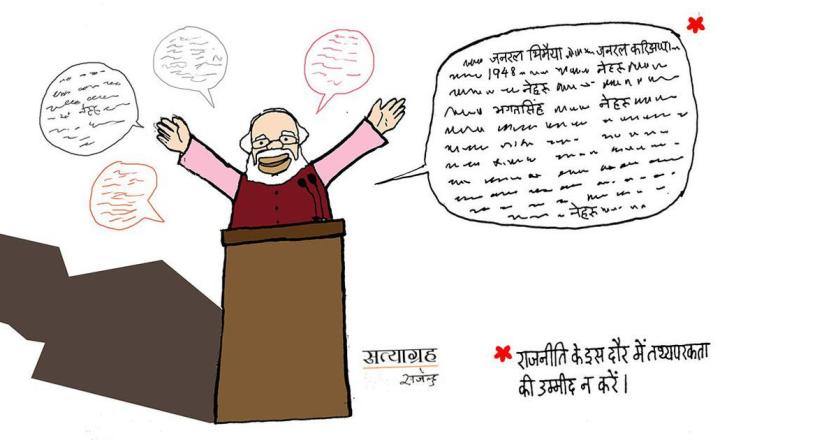 नेहरू
जनरल थिमैया जनरल करिअप्पा
1948 नेहरू
नेहरू
भगतसिंह नेहरू
नेहरू
सत्याग्रह
राजेन्द्र
राजनीति के इस दौर में तथ्यपरकता
की उम्मीद न करें।